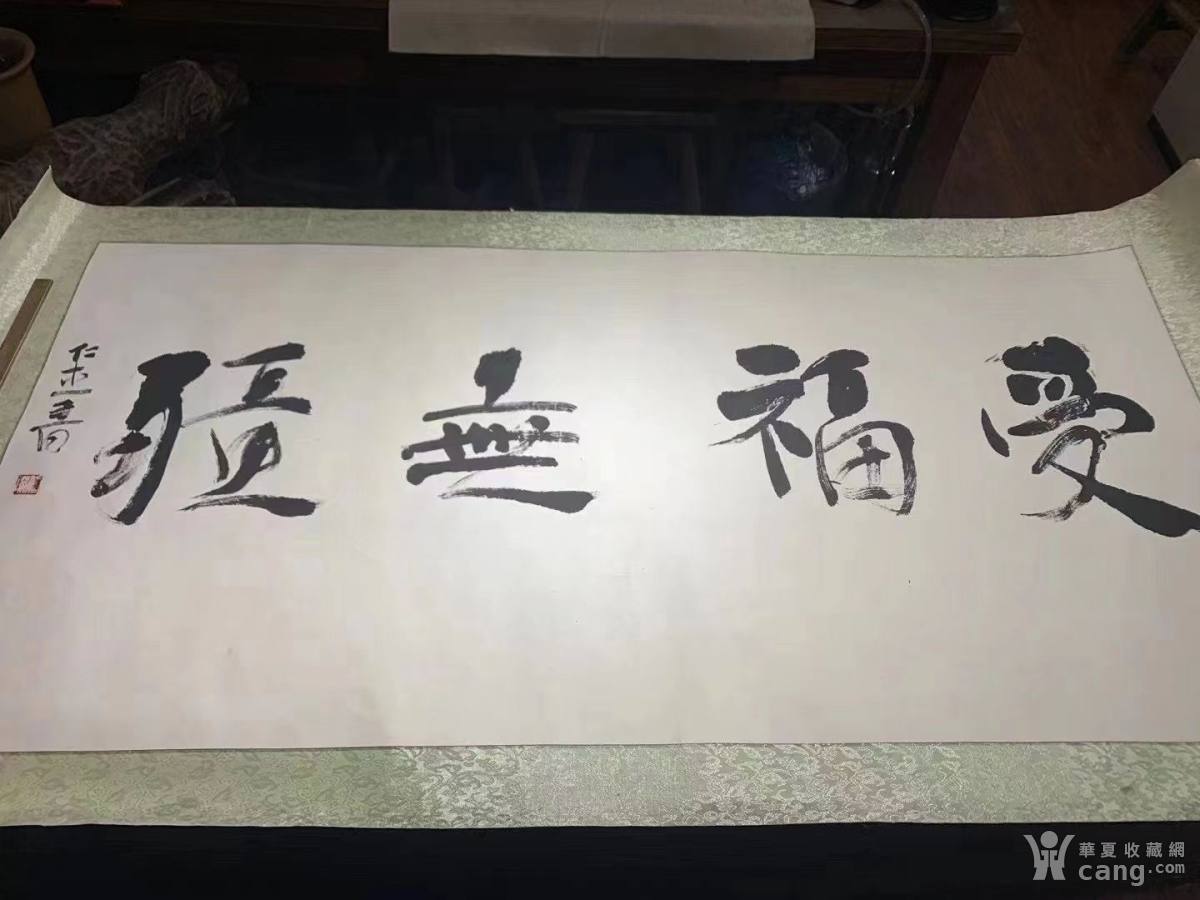 受福無疆
書
華夏收藏網
cang.com